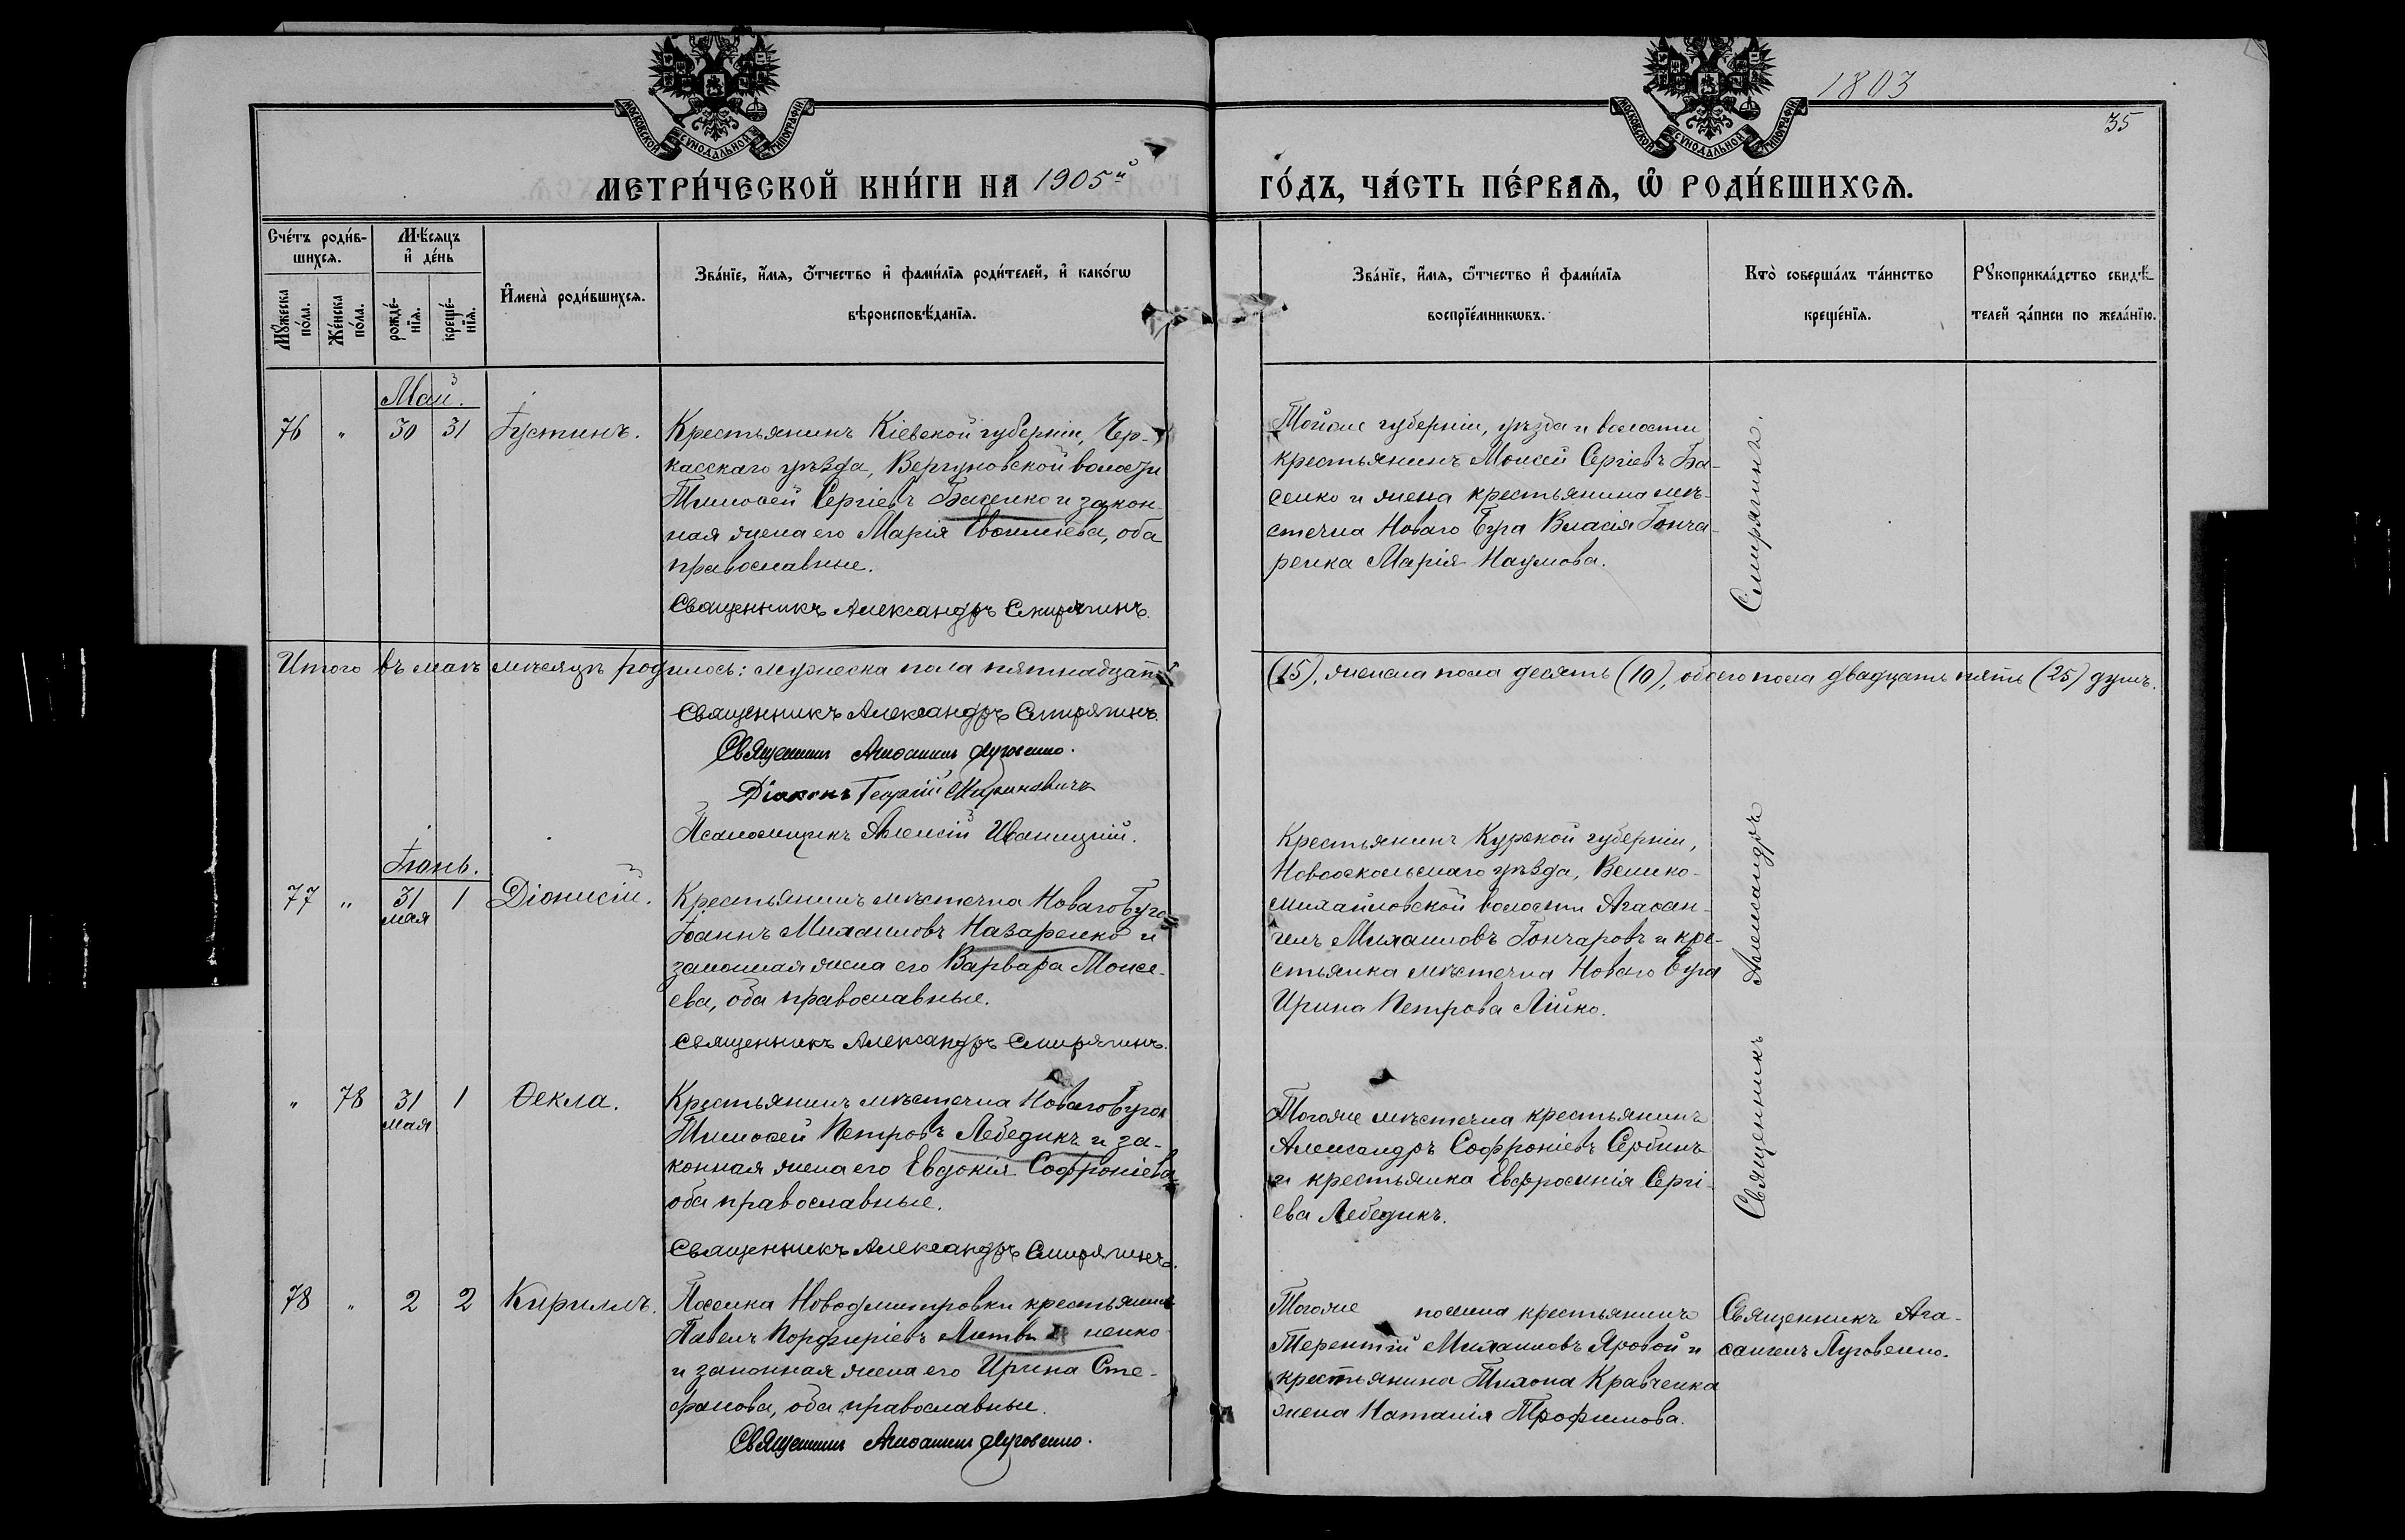 1803
35
МОСКОВСКОЙ СѴНОДАЛЬНОЙ ТИПОГРАФІИ
МОСКОВСКОЙ СѴНОДАЛЬНОЙ ТИПОГРАФІИ
МЕТРИ́ЧЕСКОЙ КНИ́ГИ НА 1905й ГО́ДЪ, ЧА́СТЬ ПЕ́РВАѦ, Ѽ РОДИ́ВШИХСѦ.
Сче́тъ роди́в-
шихсѧ.
Мꙋ́жеска по́ла.
Же́нска по́ла.
Мѣ́сѧцъ и҆ де́нь
рожде́-
нїѧ.
креще́-
нїѧ.
И҆мена̀ роди́вшихсѧ.
Зва́нїе, и҆́мѧ, ѻ҆́тчество и҆ фами́лїѧ роди́телей, и҆ како́гѡ
вѣроисповѣ́данїѧ.
Зва́нїе, и҆́мѧ, ѻ҆́тчество и҆ фами́лїѧ
воспрїе́мникѡвъ.
Кто̀ соверша́лъ та́инство
креще́нїѧ.
Рꙋкоприкла́дство свидѣ́-
телей за́писи по жела́нїю.
Май.
76 " 30 31 Іустинъ.
Крестьянинъ Кіевской губерніи, Чер-
касскаго уѣзда, Вергуновской волости
Тимоѳей Сергіевъ Басенко и закон-
ная жена его Марія Евѳиміева, оба
православные.
Священникъ Александръ Смирягинъ.
Тойже губерніи, уѣзда и волости
крестьянинъ Моисей Сергіевъ Ба-
сенко и жена крестьянина мѣ-
стечка Новаго Буга Власія Гонча-
ренка Марія Наумова.
Итого въ маѣ мѣсяцѣ родилось: мужеска пола пятнадцать (15), женска пола десять (10), обоего пола двадцать пять (25) душъ.
Священникъ Александръ Смирягинъ.
Священникъ Агаѳангелъ Луговенко.
Діаконъ Георгій Мариновичъ
Псаломщикъ Алексій Иваницкій.
Іюнь.
77 " 31 мая 1 Діонисій.
Крестьянинъ мѣстечка Новаго Буга
Іоаннъ Михаиловъ Назаренко и
законная жена его Варвара Моисе-
ева, оба православные.
Священникъ Александръ Смирягинъ.
Крестьянинъ Курской губерніи,
Новооскольскаго уѣзда, Велико-
михайловской волости Агаѳан-
гелъ Михаиловъ Гончаровъ и кре-
стьянка мѣстечка Новаго Буга
Ирина Петрова Лійко.
" 78 31 мая 1 Ѳекла.
Крестьянинъ мѣстечка Новаго Буга
Тимоѳей Петровъ Лебедикъ и за-
конная жена его Евдокія Софроніева
оба православные.
Священникъ Александръ Смирягинъ.
Тогоже мѣстечка крестьянинъ
Александръ Софроніевъ Сербинъ
и крестьянка Евфросинія Сергі-
ева Лебедикъ.
Священникъ Александръ Смирягинъ.
78 " 2 2 Кириллъ.
Поселка Новодмитровки крестьянинъ
Павелъ Порфиріевъ Литвиненко
и законная жена его Ирина Сте-
фанова, оба православные.
Священникъ Агаѳангелъ Луговенко.
Тогоже поселка крестьянинъ
Терентій Михаиловъ Яровой и
крестьянина Тихона Кравченка
жена Наталія Трофимова.
Священникъ Ага-
ѳангелъ Луговенко.